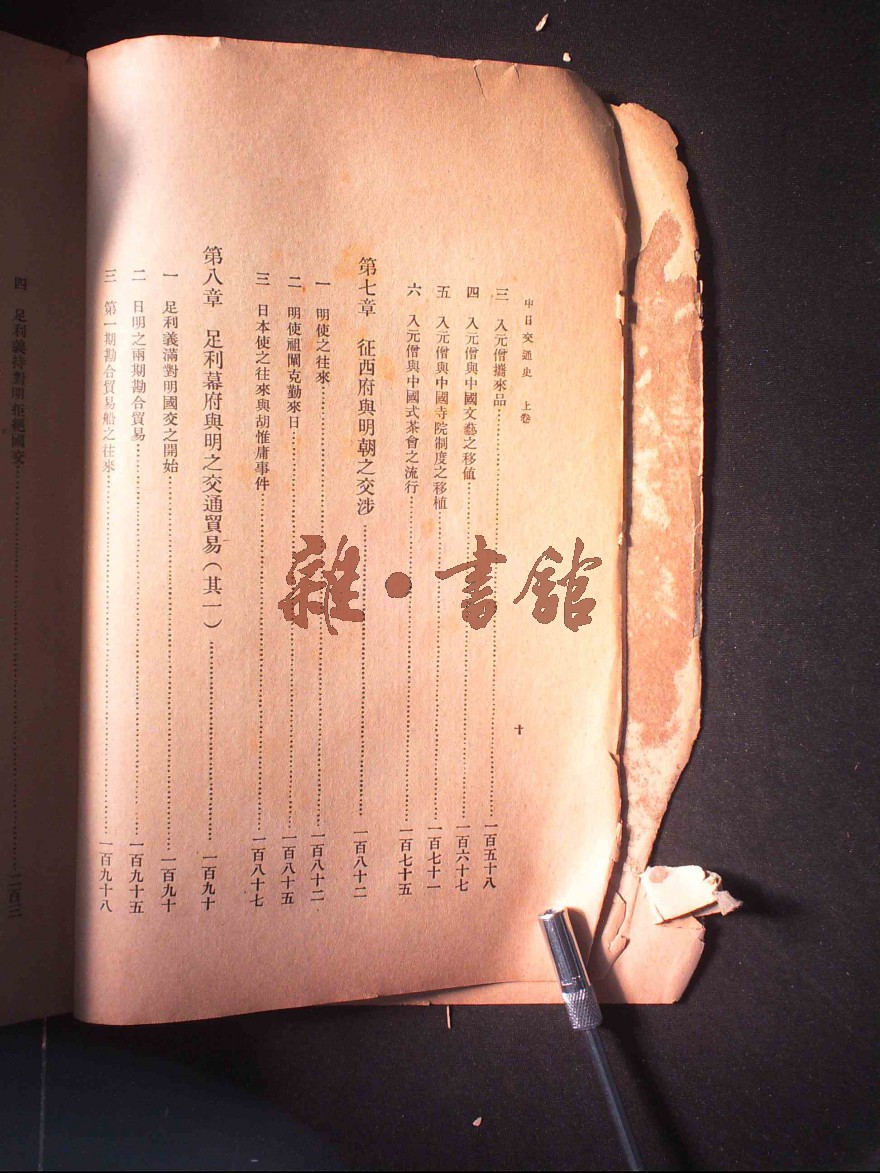 中日交通史 上卷
十
三 入元僧攜來品……一百五十八
四 入元僧與中國文藝之移植……一百六十七
五 入元僧與中國寺院制度之移植……一百七十一
六 入元僧與中國式茶會之流行……一百七十五
第七章 征西府與明朝之交涉……一百八十二
一 明使之往來……一百八十二
二 明使祖闡克勤來日……一百八十五
三 日本使之往來與胡惟庸事件……一百八十七
第八章 足利幕府與明之交通貿易(其一)……一百九十
一 足利義滿對明國交之開始……一百九十
二 日明之兩期勘合貿易……一百九十五
三 第一期勘合貿易船之往來……一百九十八
四 足利義持對明拒絕國交……二百三
雜·書館